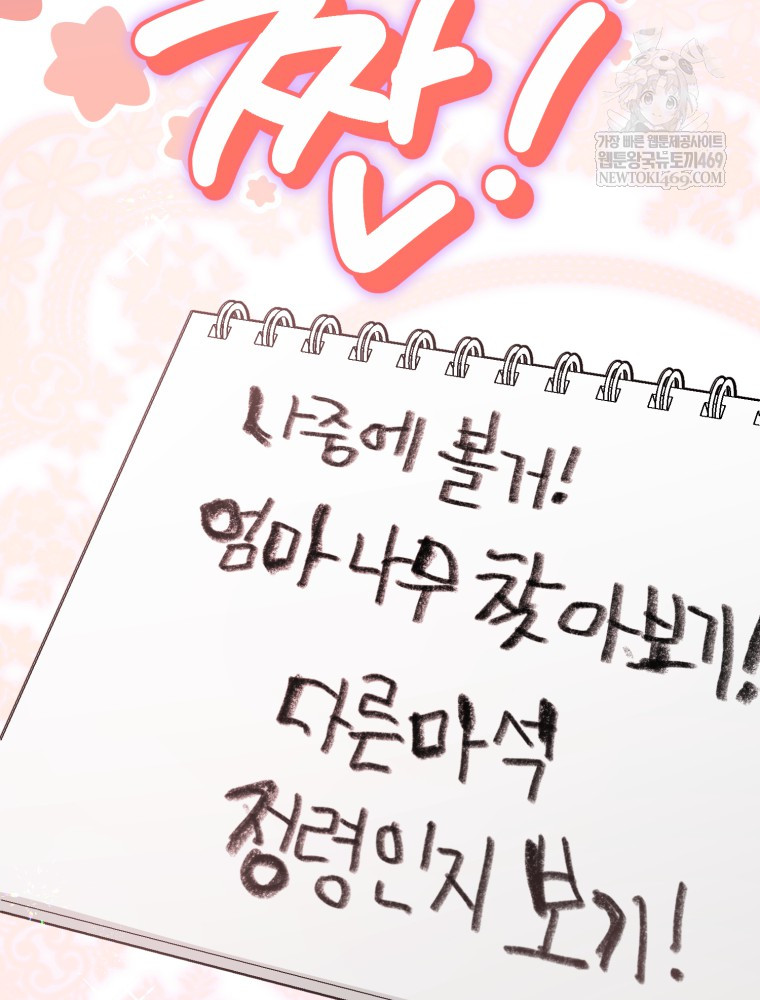 짠!
가장 빠른 웹툰제공사이트
웹툰왕국뉴토끼469
NEWTOKI469.COM
나중에 볼거!
엄마 나무 찾아보기!
다른 마석
정령인지 보기!